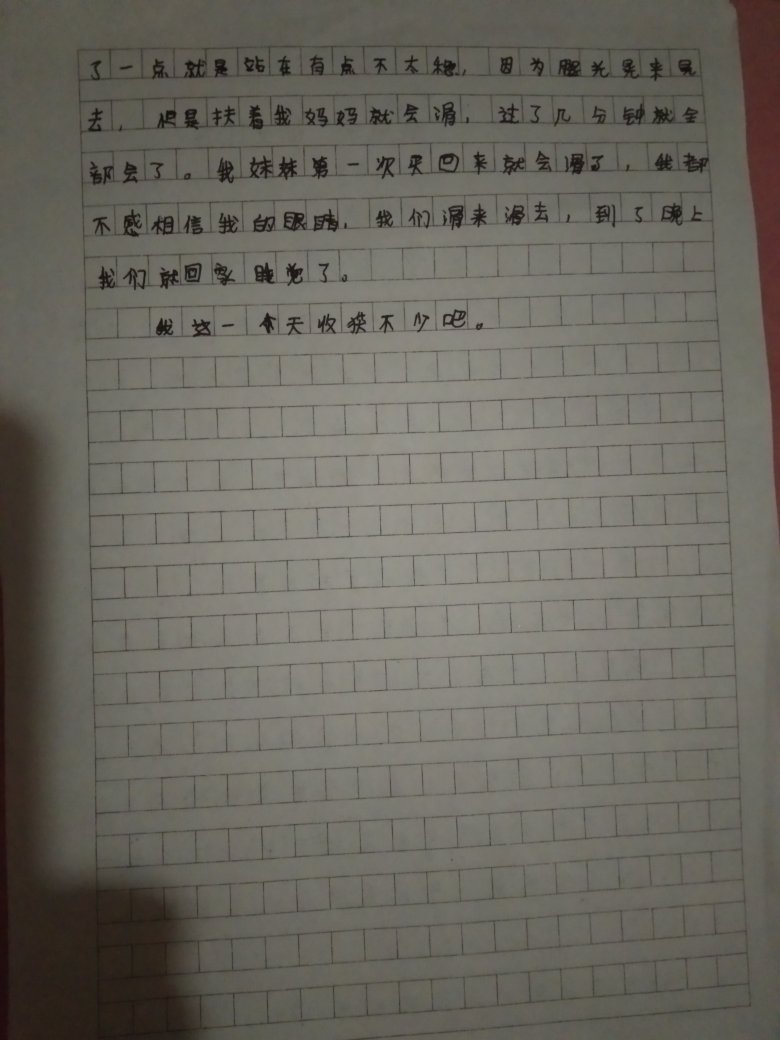 了一点就是站在有点不太稳，因为腿光晃来晃
去，但是扶着我妈妈就会滑，过了几分钟就全
部会了。我妹妹第一次买回来就会滑了，我都
不感相信我的眼睛，我们滑来滑去，到了晚上
我们就回家睡觉了。
我这一个天收获不少吧。